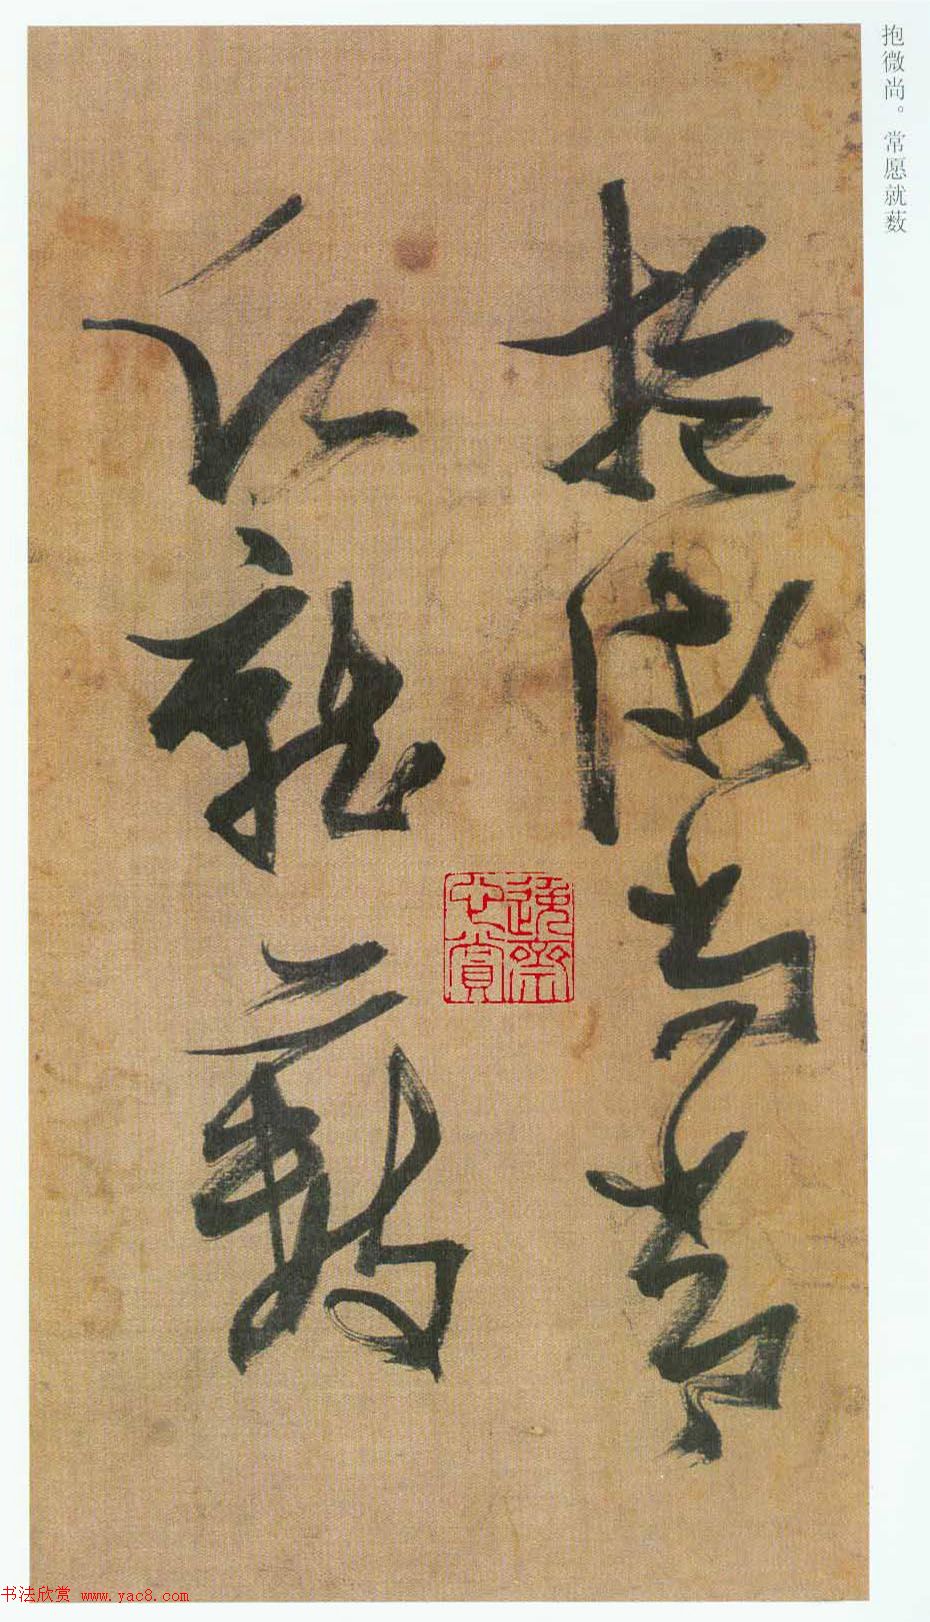 抱微尚。常愿就薮
抱微尚常
愿就薮
逸齋心賞
书法欣赏 www.yac8.com